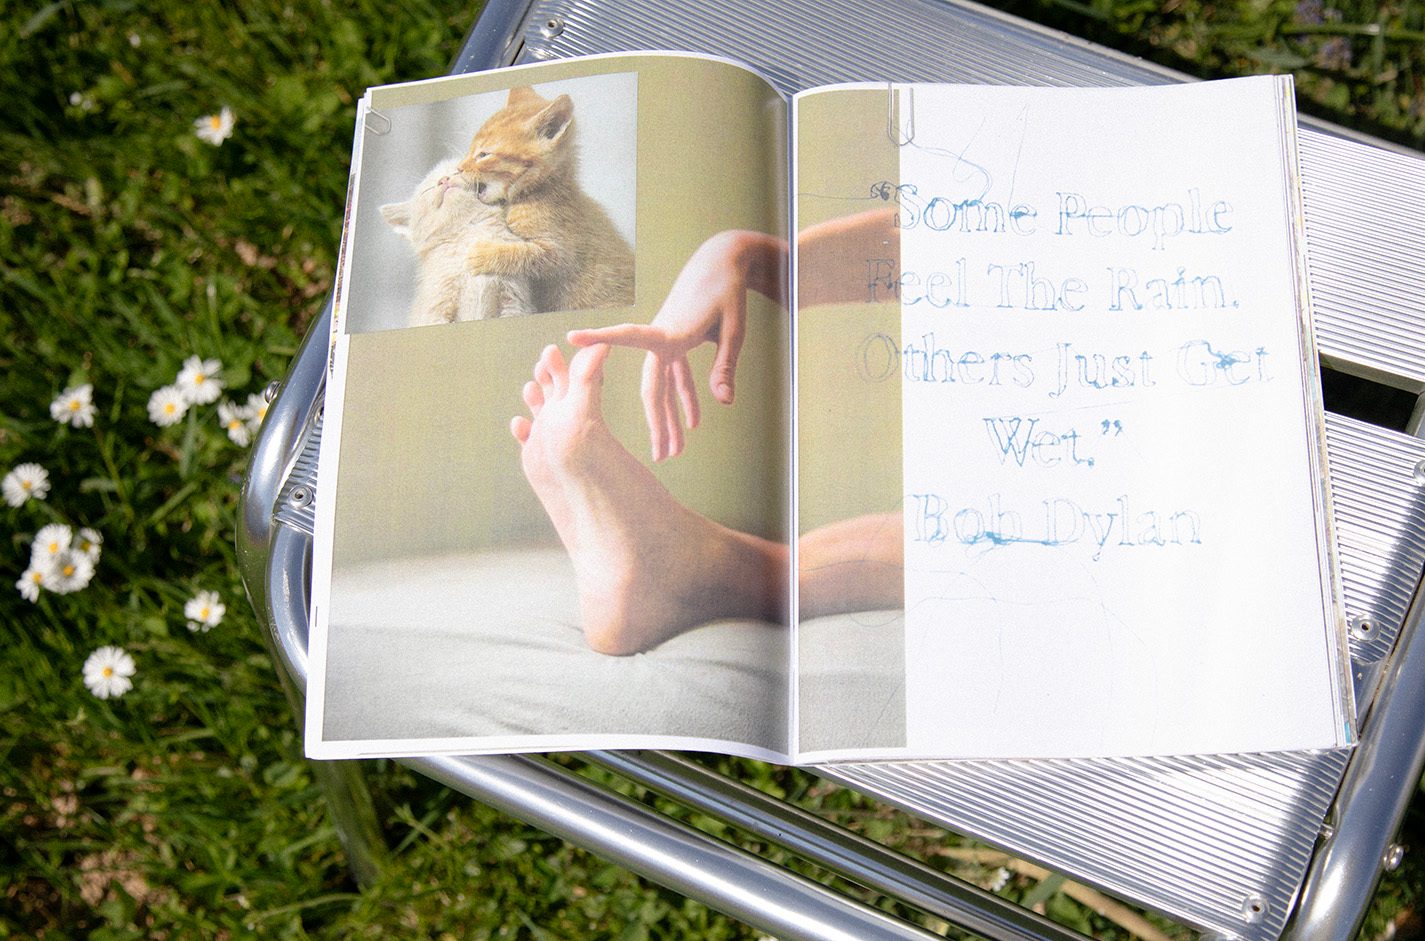 “Some People
Feel The Rain.
Others Just Get
Wet.”
Bob Dylan